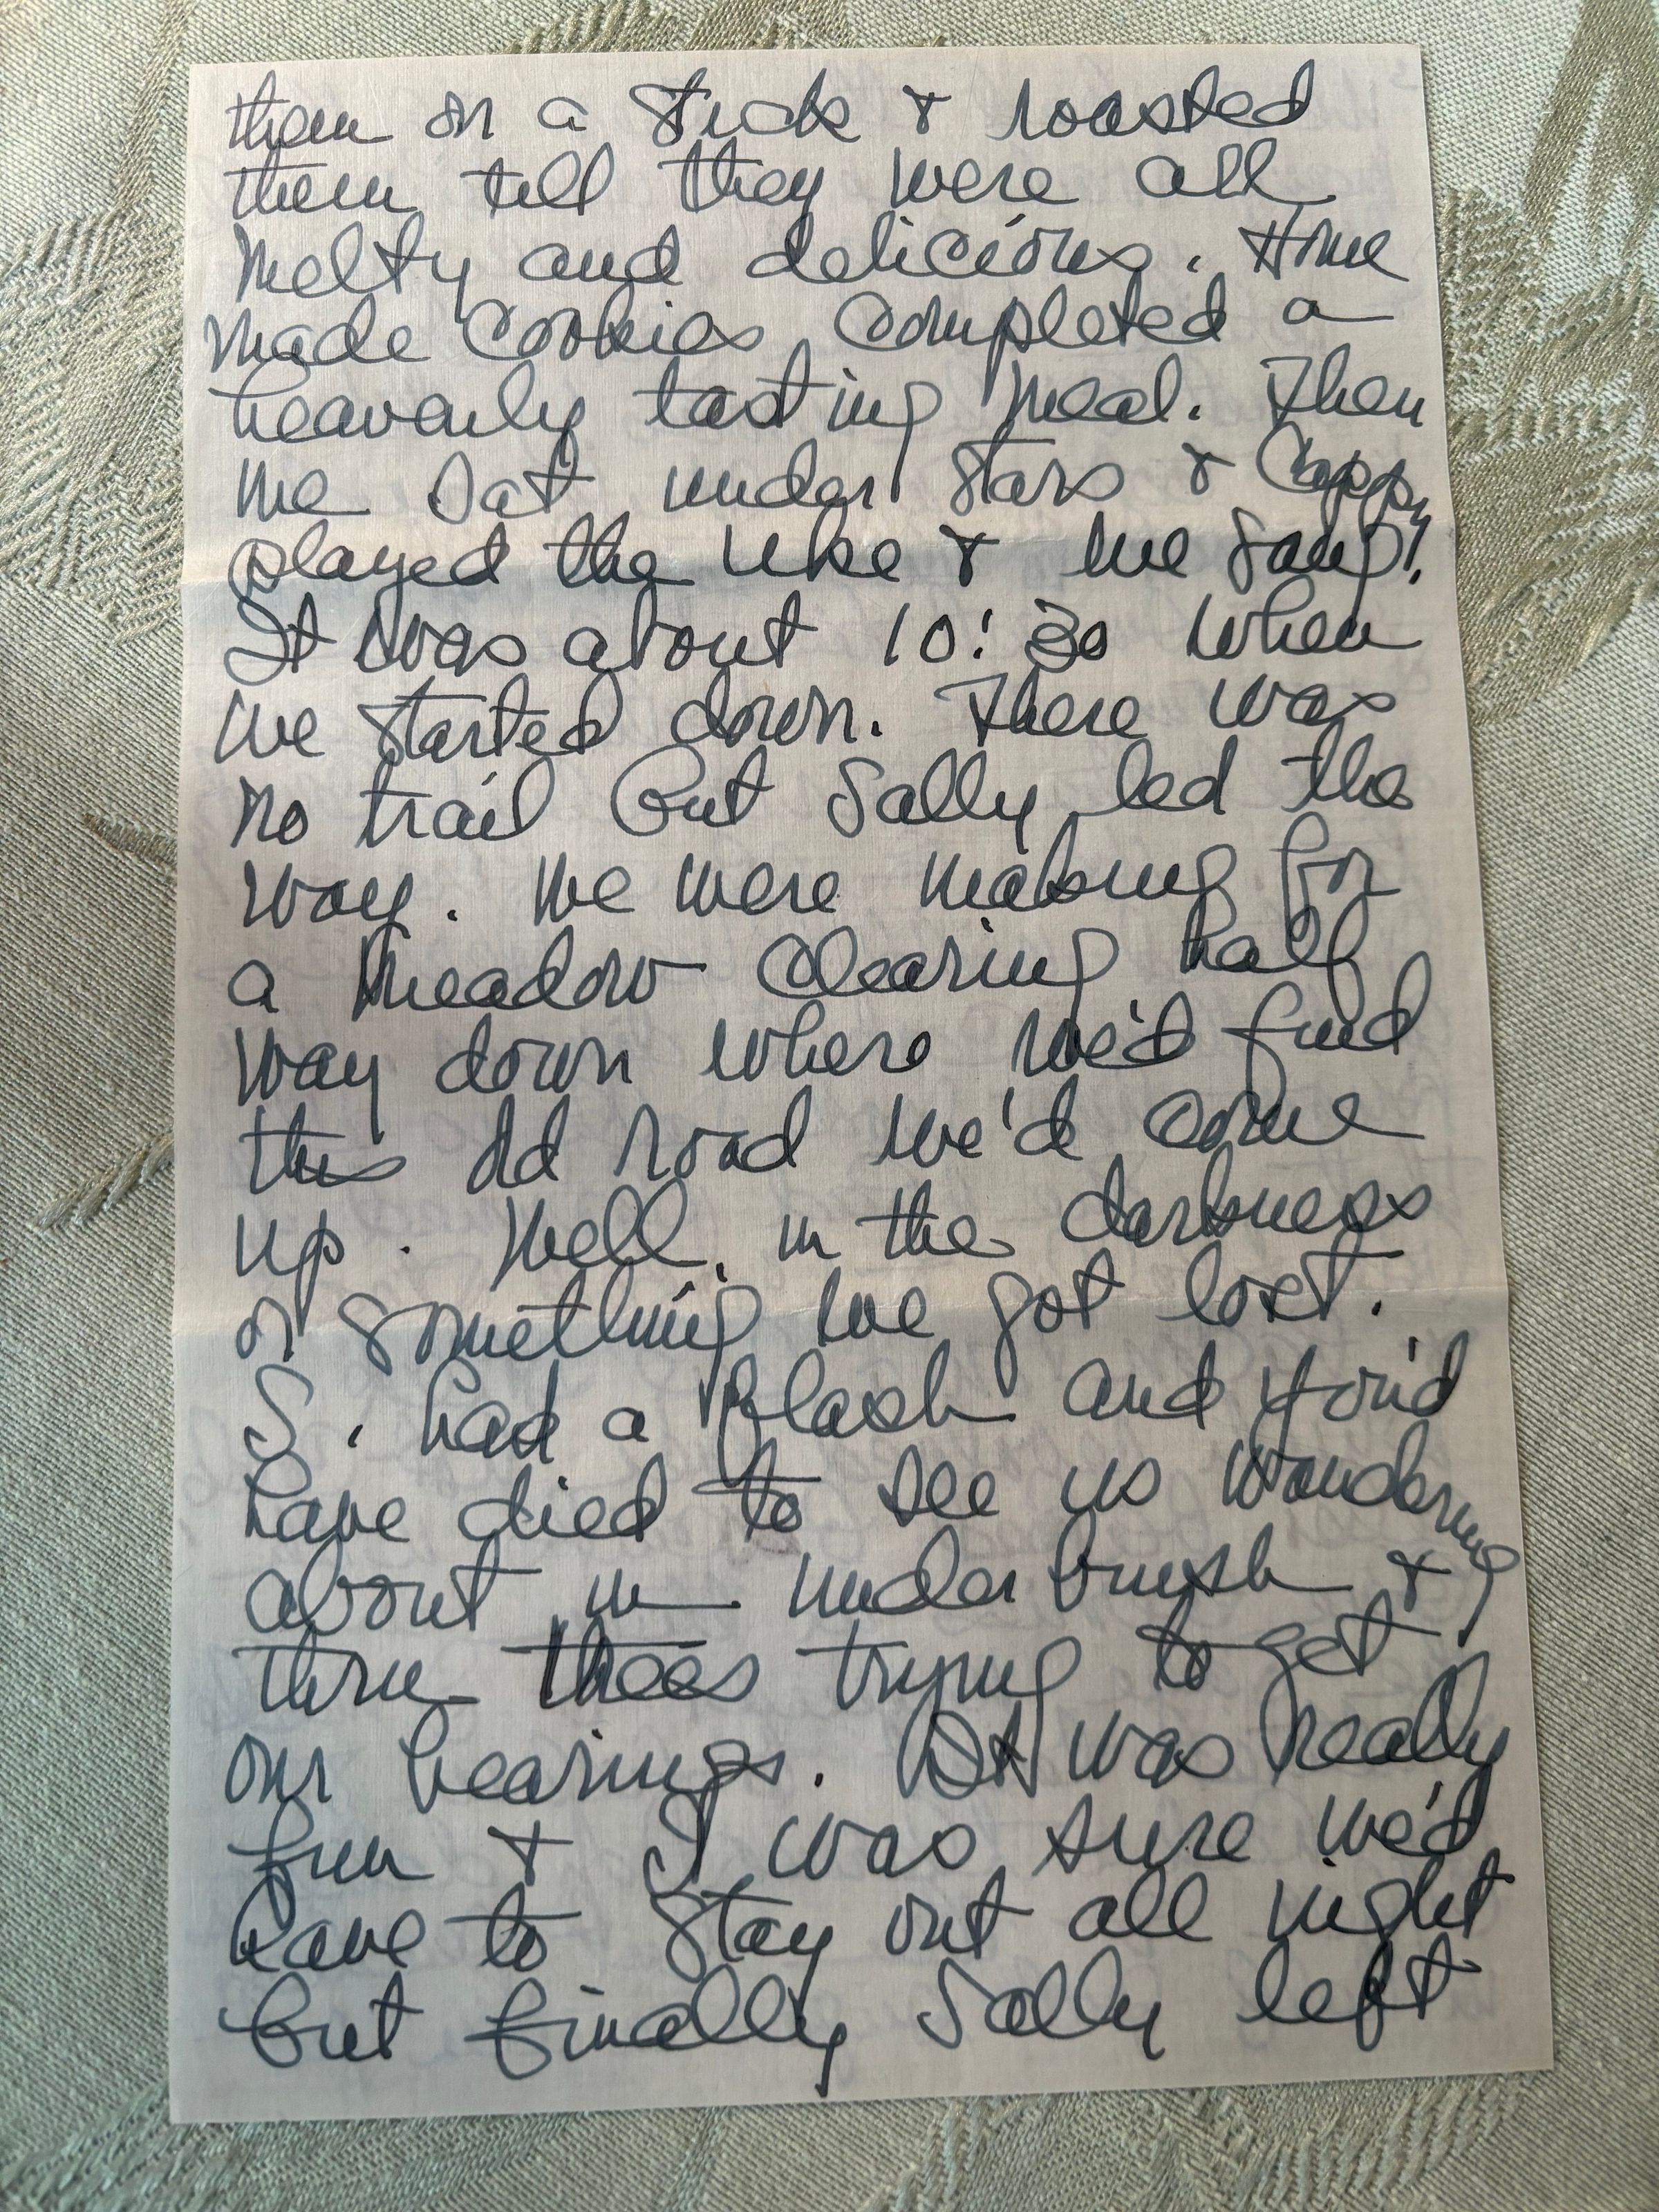 them on a stick & roasted
them till they were all
melty and delicious. Home
made cookies completed a
heavenly tasting meal. Then
we sat under stars & Cappy
played the uke & we sang!
It was about 10:30 when
we started down. There was
no trail but Sally led the
way. We were making for
a meadow clearing half
way down where we'd find
this old road we'd come
up. Well, in the darkness
or something we got lost.
S. had a flash and you'd
have died to see us wandering
about in underbrush &
thru trees trying to get
our bearings. It was really
fun & I was sure we'd
have to stay out all night
but finally Sally left